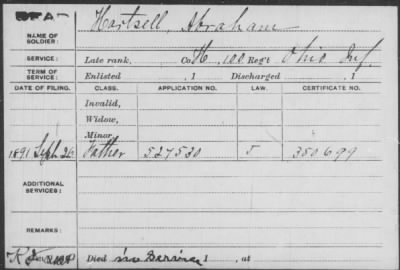 Hartsell, Abraham
NAME OF
SOLDIER:
SERVICE: Late rank, Co. H, 100 Reg't Ohio Inf.
TERM OF
SERVICE: Enlisted , 1 Discharged , 1
DATE OF FILING. CLASS. APPLICATION NO. LAW. CERTIFICATE NO.
Invalid,
Widow,
Minor,
1891 Sept 26 Father 527530 350699
ADDITIONAL
SERVICES:
REMARKS:
Died in Service 1 , at